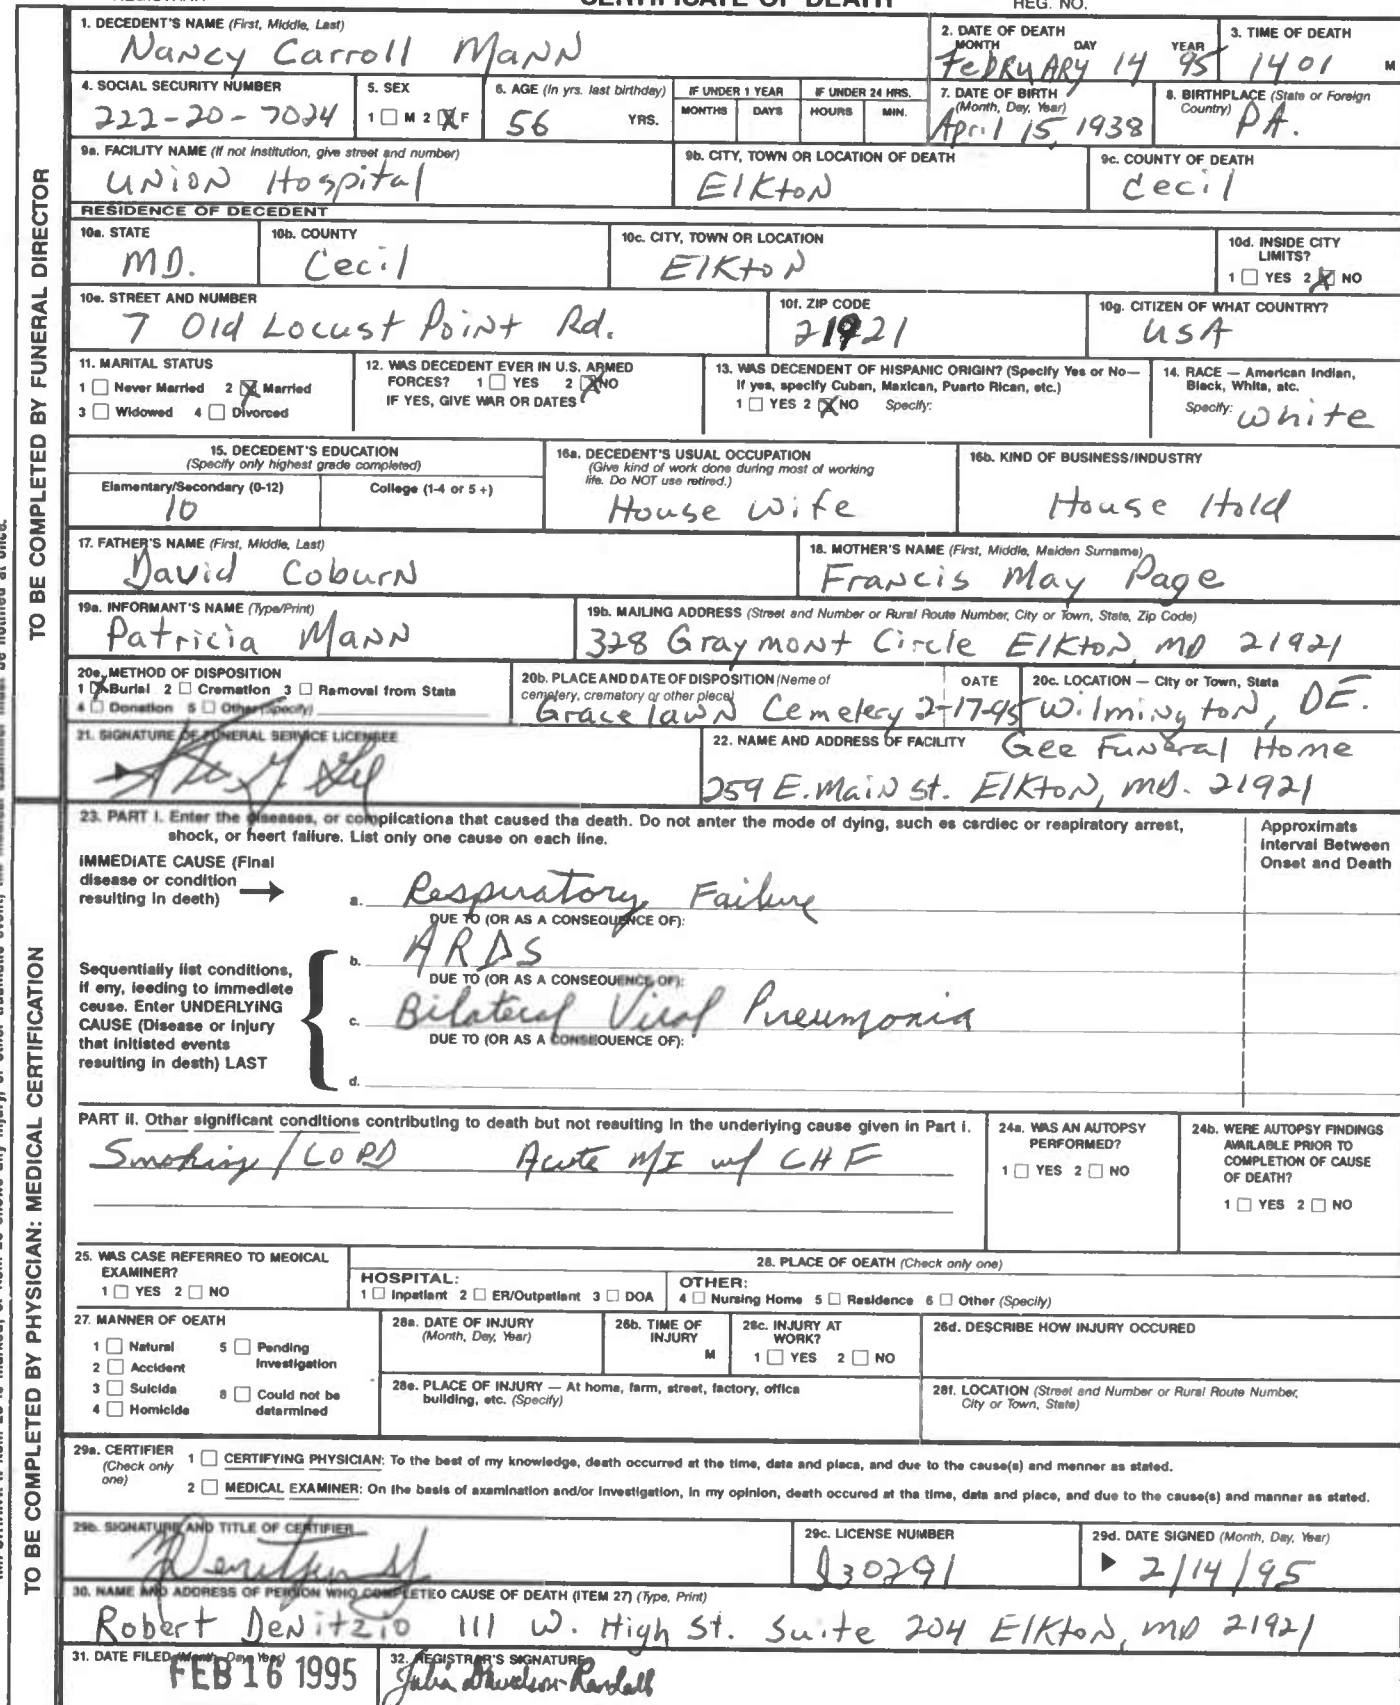 CERTIFICATE OF DEATH
REG. NO.
1. DECEDENT'S NAME (First, Middle, Last)
Nancy Carroll Mann
2. DATE OF DEATH
MONTH DAY YEAR
February 14 95
3. TIME OF DEATH
1401 M
4. SOCIAL SECURITY NUMBER
222-20-7024
5. SEX
1 M 2 X F
6. AGE (In yrs. last birthday)
56 YRS.
IF UNDER 1 YEAR
MONTHS DAYS
IF UNDER 24 HRS.
HOURS MIN.
7. DATE OF BIRTH
(Month, Day, Year)
April 15, 1938
8. BIRTHPLACE (State or Foreign
Country)
PA.
9a. FACILITY NAME (If not institution, give street and number)
Union Hospital
9b. CITY, TOWN OR LOCATION OF DEATH
Elkton
9c. COUNTY OF DEATH
Cecil
RESIDENCE OF DECEDENT
10a. STATE
MD.
10b. COUNTY
Cecil
10c. CITY, TOWN OR LOCATION
Elkton
10d. INSIDE CITY
LIMITS?
1 YES 2 X NO
10e. STREET AND NUMBER
7 Old Locust Point Rd.
10f. ZIP CODE
21921
10g. CITIZEN OF WHAT COUNTRY?
USA
11. MARITAL STATUS
1 Never Married 2 X Married
3 Widowed 4 Divorced
12. WAS DECEDENT EVER IN U.S. ARMED
FORCES? 1 YES 2 X NO
IF YES, GIVE WAR OR DATES
13. WAS DECENDENT OF HISPANIC ORIGIN? (Specify Yes or No—
If yes, specify Cuban, Maxican, Puarto Rican, etc.)
1 YES 2 X NO Specify:
14. RACE — American Indian,
Black, White, atc.
Specify: White
15. DECEDENT'S EDUCATION
(Specify only highest grade completed)
Elamentary/Secondary (0-12)
10
College (1-4 or 5 +)
16a. DECEDENT'S USUAL OCCUPATION
(Give kind of work done during most of working
life. Do NOT use retired.)
House wife
16b. KIND OF BUSINESS/INDUSTRY
House Hold
17. FATHER'S NAME (First, Middle, Last)
David Coburn
18. MOTHER'S NAME (First, Middle, Maiden Surname)
Francis May Page
19a. INFORMANT'S NAME (Type/Print)
Patricia Mann
19b. MAILING ADDRESS (Street and Number or Rural Route Number, City or Town, State, Zip Code)
328 Graymont Circle Elkton, MD 21921
20a. METHOD OF DISPOSITION
1 X Burial 2 Cremation 3 Ramoval from Stata
4 Donation 5 Other (Specify)
20b. PLACE AND DATE OF DISPOSITION (Name of
cemetery, crematory or other place)
DATE
Gracelawn Cemetery 2-17-95
20c. LOCATION — City or Town, Stata
Wilmington, DE.
21. SIGNATURE OF FUNERAL SERVICE LICENSEE
22. NAME AND ADDRESS OF FACILITY
Gee Funeral Home
259 E. Main St. Elkton, MD. 21921
23. PART I. Enter the diseases, or complicationa that caused tha death. Do not anter the mode of dying, such es cardiec or reapiratory arrest,
shock, or heert failure. List only one cause on each line.
Approximats
Interval Between
Onset and Death
IMMEDIATE CAUSE (Final
disease or condition
resulting In deeth)
a. Respiratory Failure
DUE TO (OR AS A CONSEQUENCE OF):
b. ARDS
DUE TO (OR AS A CONSEQUENCE OF):
c. Bilateral Viral Pneumonia
DUE TO (OR AS A CONSEQUENCE OF):
d.
Sequentially list conditions,
if eny, leeding to immediete
ceuse. Enter UNDERLYING
CAUSE (Disease or injury
that initisted events
resulting in desth) LAST
PART II. Other significant conditions contributing to death but not resulting in the underlying cause given in Part I.
Smoking / COPD Acute MI w/ CHF
24a. WAS AN AUTOPSY
PERFORMED?
1 YES 2 NO
24b. WERE AUTOPSY FINDINGS
AVAILABLE PRIOR TO
COMPLETION OF CAUSE
OF DEATH?
1 YES 2 NO
25. WAS CASE REFERRED TO MEDICAL
EXAMINER?
1 YES 2 NO
26. PLACE OF DEATH (Check only one)
HOSPITAL:
1 Inpatlant 2 ER/Outpatlent 3 DOA
OTHER:
4 Nursing Home 5 Rasidence 6 Other (Specify)
27. MANNER OF DEATH
1 Natural
2 Accident
3 Suicida
4 Homicide
5 Pending
Investigation
6 Could not be
datarmined
28a. DATE OF INJURY
(Month, Day, Year)
28b. TIME OF
INJURY
M
28c. INJURY AT
WORK?
1 YES 2 NO
28d. DESCRIBE HOW INJURY OCCURED
28e. PLACE OF INJURY — At home, farm, street, factory, offica
building, etc. (Specify)
28f. LOCATION (Street and Number or Rural Route Number,
City or Town, State)
29a. CERTIFIER
(Check only
one)
1 CERTIFYING PHYSICIAN: To the best of my knowledge, death occurred at the time, data and placa, and due to the cause(s) and menner as stated.
2 MEDICAL EXAMINER: On the basis of axamination and/or Investigation, in my opinion, death occured at tha time, data and place, and due to the cause(s) and manner as stated.
29b. SIGNATURE AND TITLE OF CERTIFIER
29c. LICENSE NUMBER
D30291
29d. DATE SIGNED (Month, Day, Year)
2/14/95
30. NAME AND ADDRESS OF PERSON WHO COMPLETED CAUSE OF DEATH (ITEM 27) (Type, Print)
Robert Denitzio 111 W. High St. Suite 204 Elkton, MD 21921
31. DATE FILED (Month, Day, Year)
FEB 16 1995
32. REGISTRAR'S SIGNATURE
TO BE COMPLETED BY FUNERAL DIRECTOR
TO BE COMPLETED BY PHYSICIAN: MEDICAL CERTIFICATION